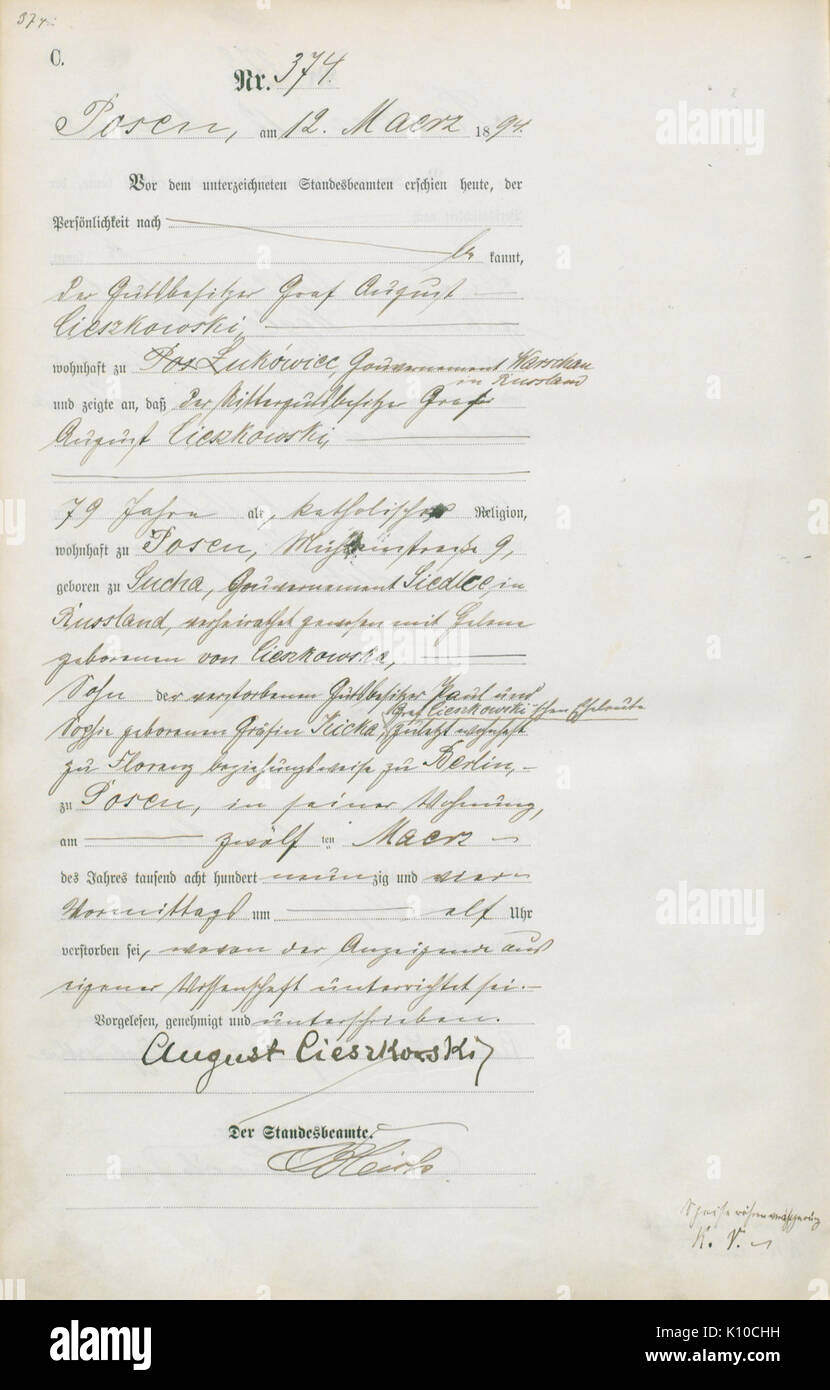 374
C.
Nr. 374.
Posen, am 12. Maerz 1894.
Vor dem unterzeichneten Standesbeamten erschien heute, der
Persönlichkeit nach
be kannt,
der Gutsbesitzer Graf August
Cieszkowski,
wohnhaft zu Pos Łukówiec, Gouvernement Warschau
in Russland
und zeigte an, daß der Rittergutsbesitzer Graf
August Cieszkowski,
79 Jahre alt, katholischer Religion,
wohnhaft zu Posen, Mühlenstraße 9,
geboren zu Sucha, Gouvernement Siedlec, in
Russland, verheirathet gewesen mit Helene
geborenen von Cieszkowska,
Sohn der verstorbenen Gutsbesitzer Paul und
Graf Cieszkowski'schen Eheleute
Sophie geborenen Gräfin Kicka, zuletzt wohnhaft
zu Florenz beziehungsweise zu Berlin,
zu Posen, in seiner Wohnung,
am zwölf ten Maerz
des Jahres tausend acht hundert neunzig und vier
Vormittags um elf Uhr
verstorben sei, wovon der Anzeigende aus
eigener Wissenschaft unterrichtet sei.
Vorgelesen, genehmigt und unterschrieben.
August Cieszkowski
Der Standesbeamte.
K. V.
alamy
alamy
alamy
a
a
alamy
Image ID: K10CHH
www.alamy.com